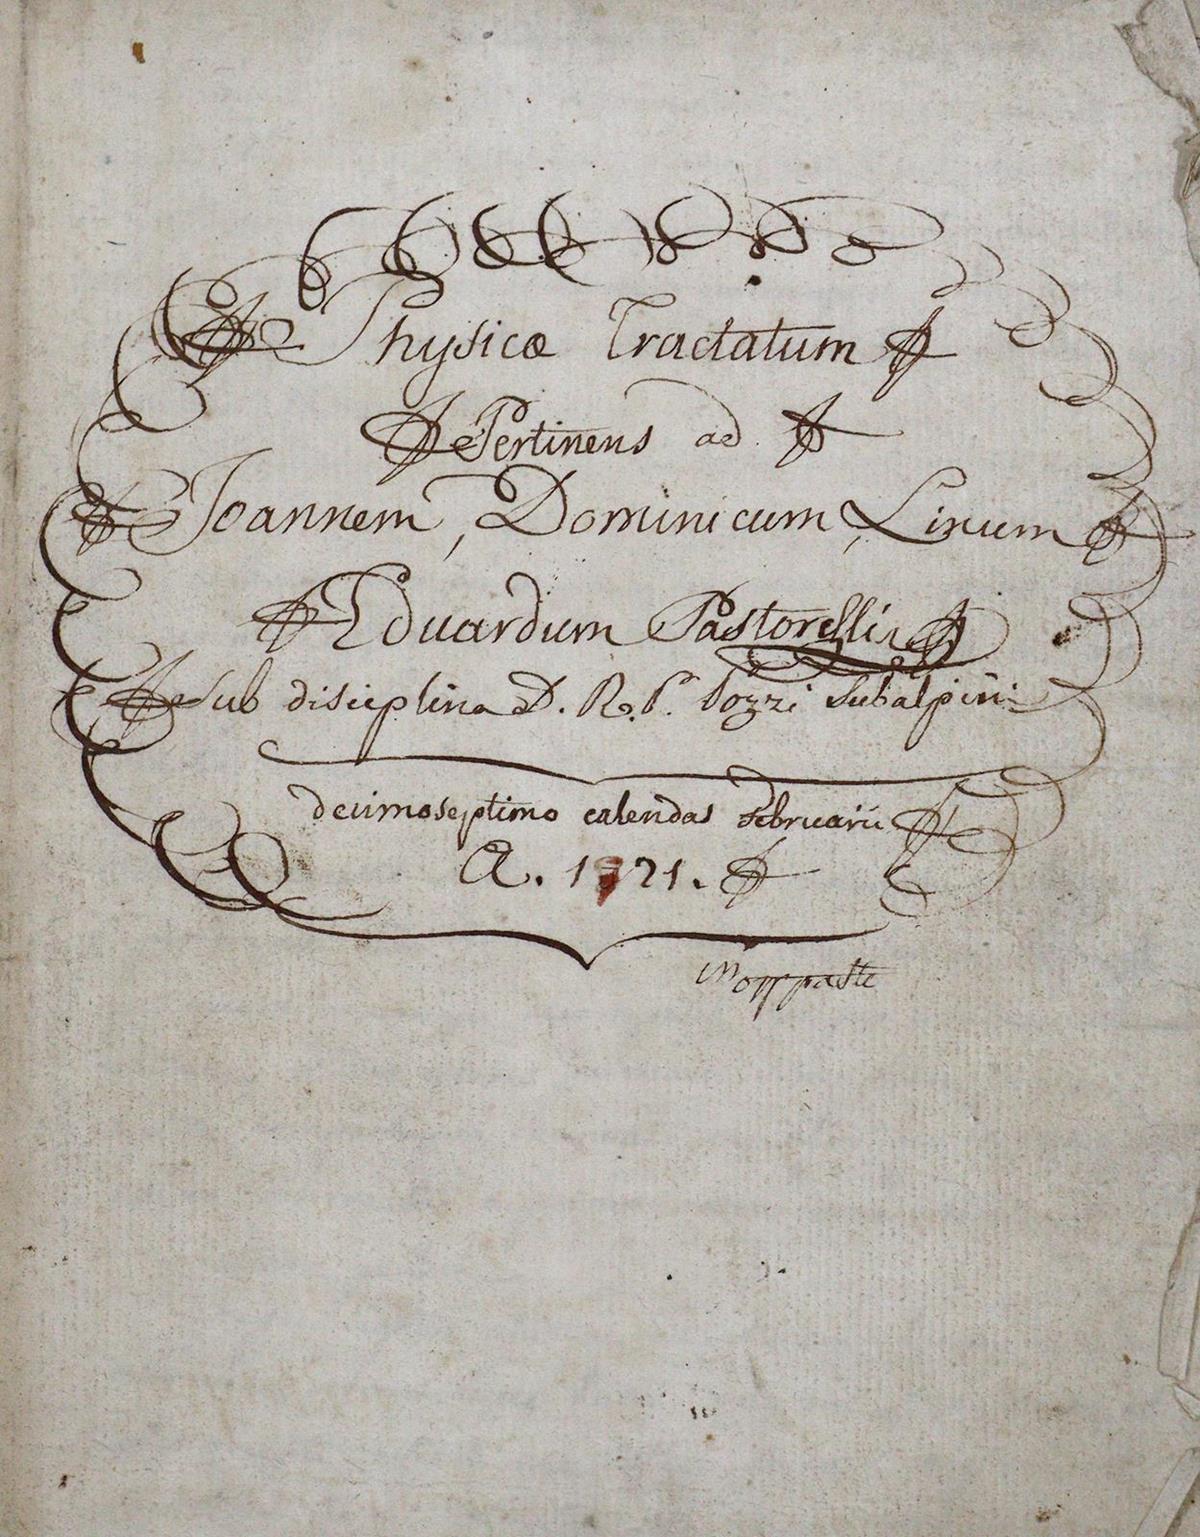 Physicæ Tractatum
Pertinens ad
Joannem, Dominicum, Linum
Eduardum Pastorelli
Sub disciplina D. R. P. Pozzi Subalpini
decimoseptimo calendas februarii
A. 1721.